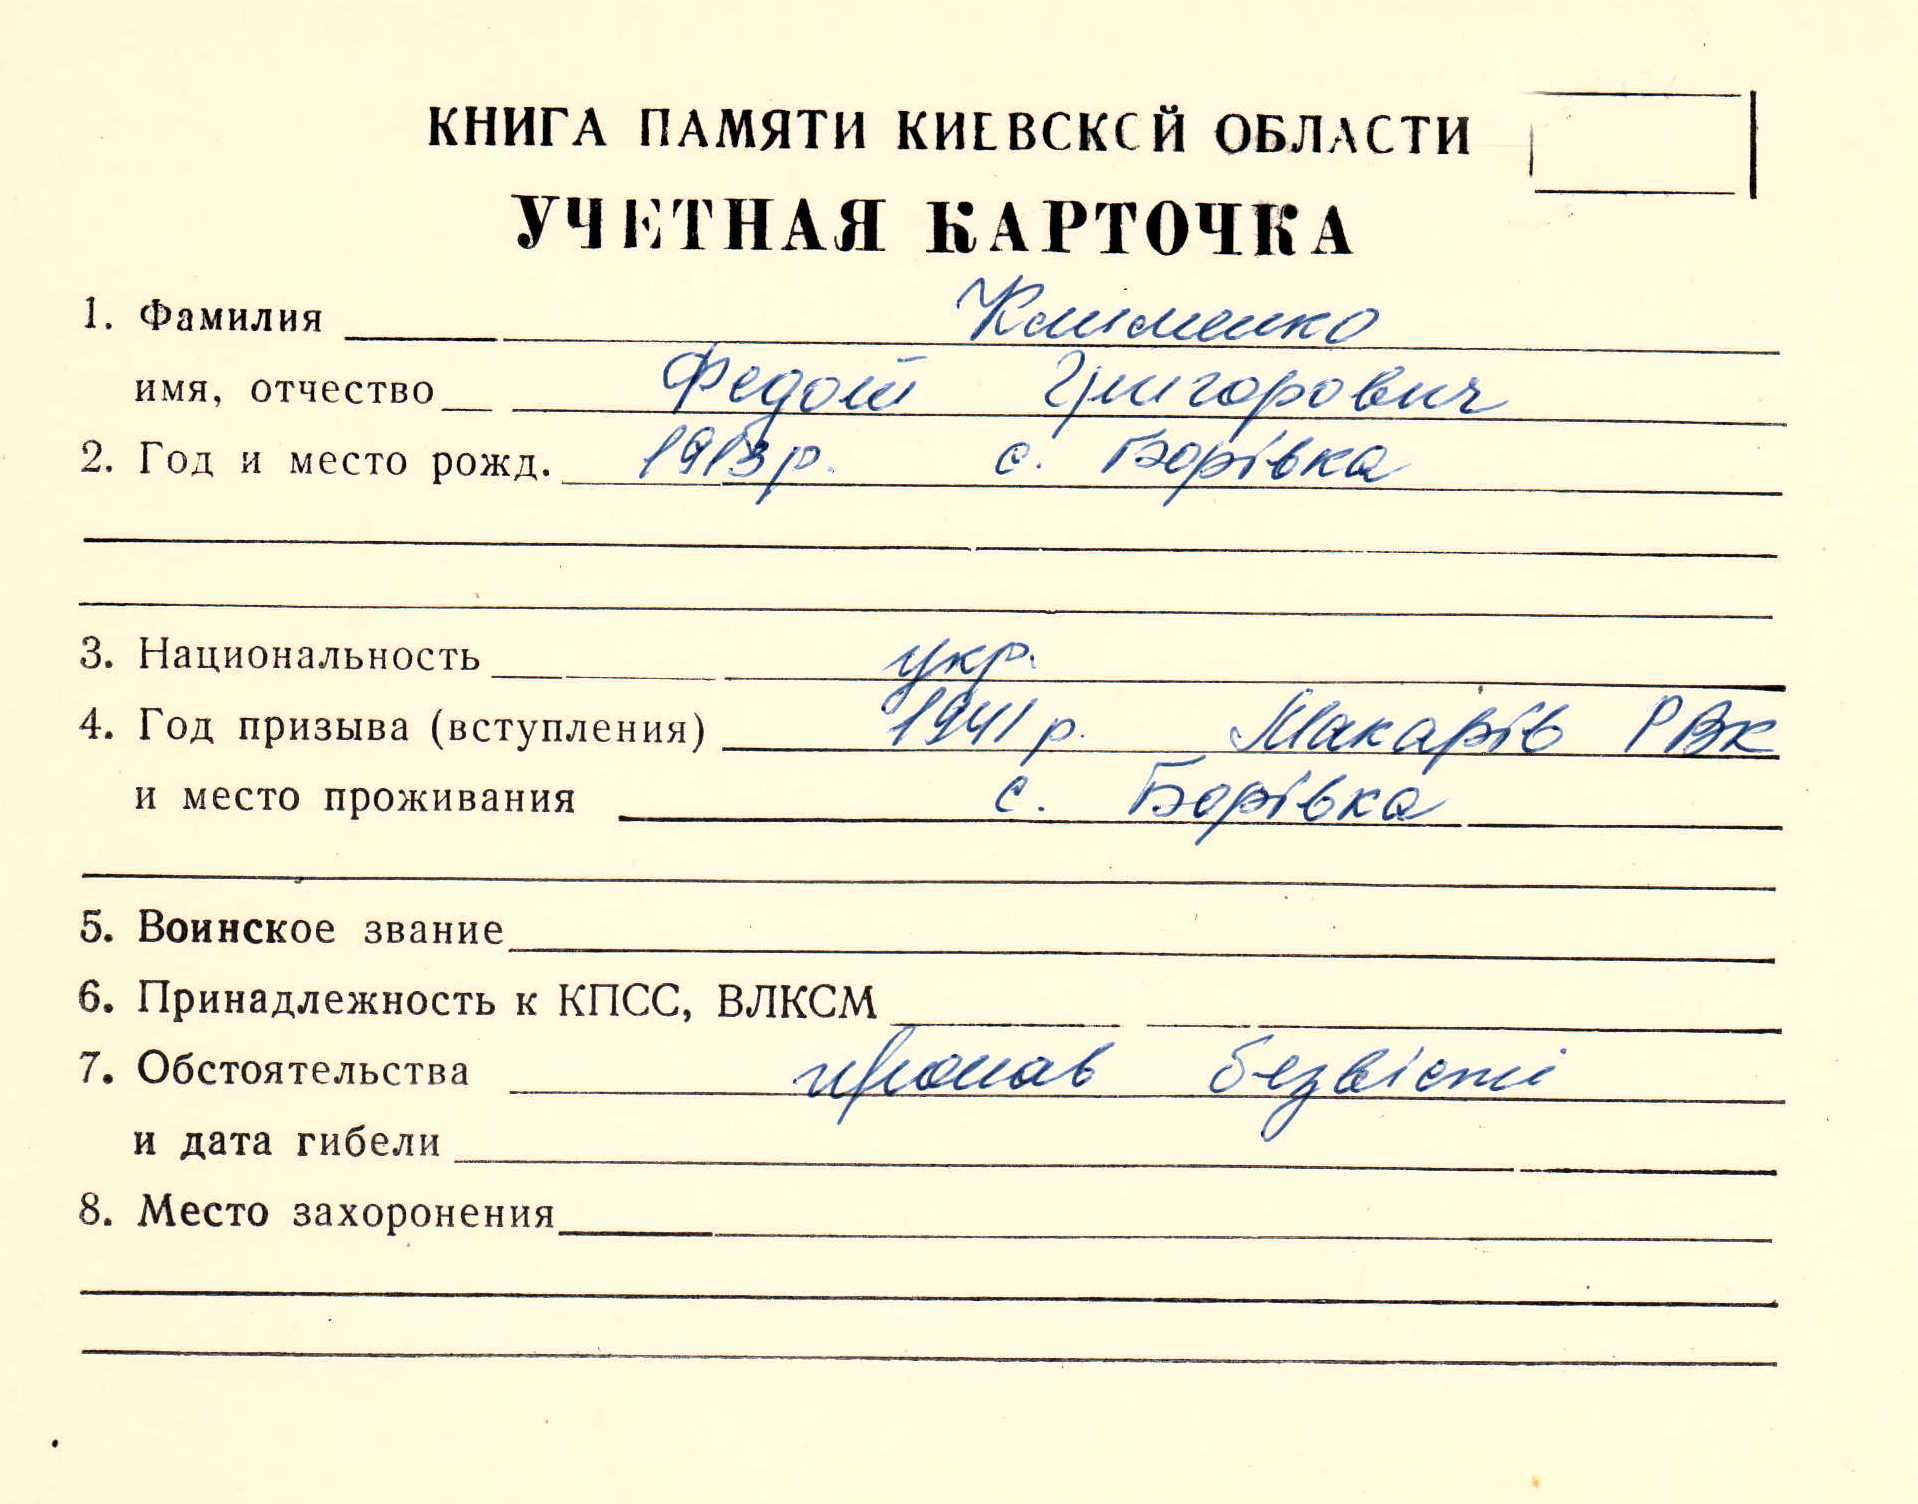 КНИГА ПАМЯТИ КИЕВСКОЙ ОБЛАСТИ
УЧЕТНАЯ КАРТОЧКА
1. Фамилия Клименко
имя, отчество Федот Григорович
2. Год и место рожд. 1913 р. с. Борівка
3. Национальность укр.
4. Год призыва (вступления) 1941 р. Макарів РВК
и место проживания с. Борівка
5. Воинское звание
6. Принадлежность к КПСС, ВЛКСМ
7. Обстоятельства пропав безвісті
и дата гибели
8. Место захоронения